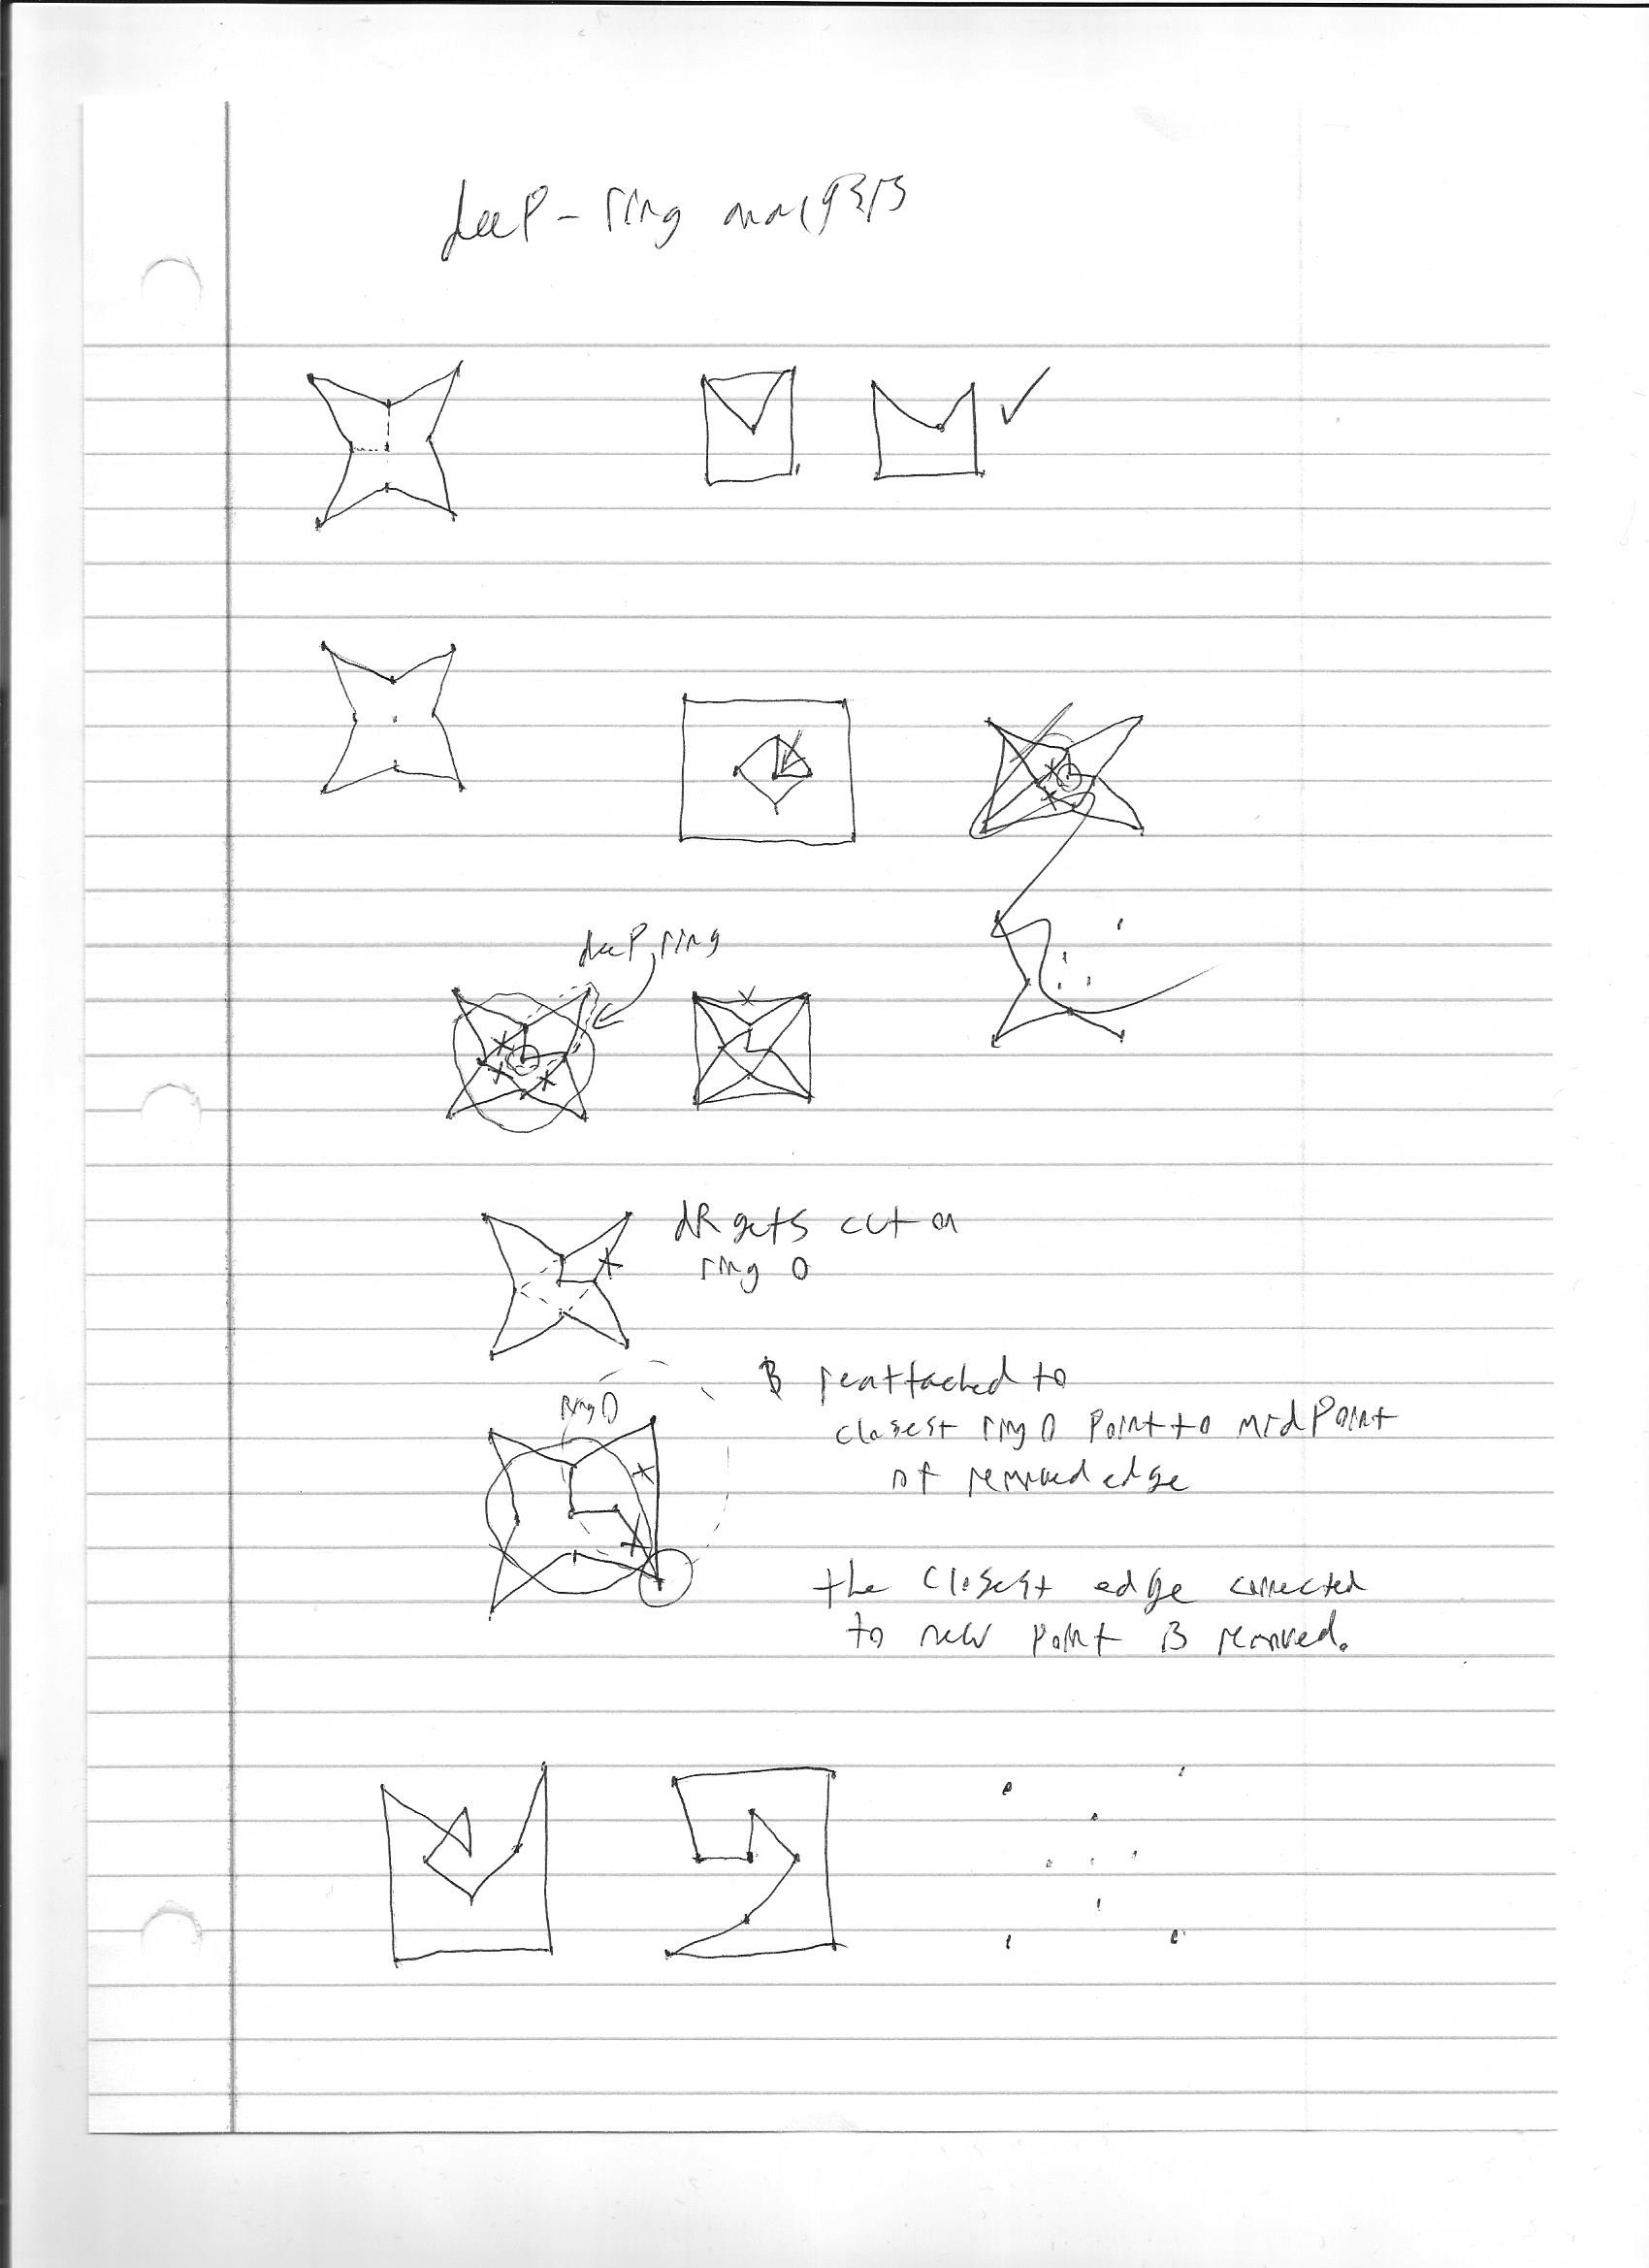 deep-ring analysis
deep ring
dR gets cut on
ring 0
Ring 0
B reattached to
closest ring 0 point to midpoint
of removed edge
the closest edge connected
to new point B removed.